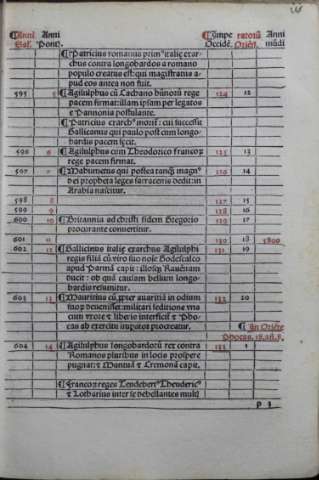 Anni Sal. Anni Pont. Impe Occidē. ratorū Oriēt. Anni mūdi
Patricius romanus prim⁹ italie exar-
chus contra longobardos a romano
populo creatus est: qui magistratus a-
pud eos antea non fuit.
595 5 Agilulphus cū Cachano hūnorū rege 124 12
pacem firmat: illam ipsam per legatos
e Pannonia postulante.
Patricius exarch⁹ morit̃: cui successit
Gallicanus qui paulo post cum longo-
bardis pacem fecit.
596 6 Agilulphus cum Theodorico francoꝝ 125 13
rege pacem firmat.
597 7 Mahumetus qui postea tanq̃ magn⁹ 126 14
dei propheta leges sarracenis dedit: in
Arabia nascitur.
598 8 127 15
599 9 128 16
600 10 Britannia ad christi fidem Gregorio 129 17
procurante conuertitur.
601 11 130 18 5800
602 12 Gallicinus italie exarchus Agilulphi 131 19
regis filiā cū viro suo noīe Godescalco
apud Parmā capit: illosq̃ Rauēnam
ducit: ob quā causam bellum longo-
bardis resumitur.
603 13 Mauritius cū ꝓpter auaritiā in odium 132 20
suoꝝ deuenisset: militari seditione vna
cum vxore et liberis interficit̃ et Pho-
cas ab exercitu imꝑator procreatur.
In Oriēte
Phocas
604 14 Agilulphus longobardorū rex contra 133 1
Romanos pluribus in locis prospere
pugnat: et Mantuā et Cremonā capit.
Francoꝝ reges Teudebert⁹ Theuderic⁹
et Lotharius inter se debellantes multi
p 1